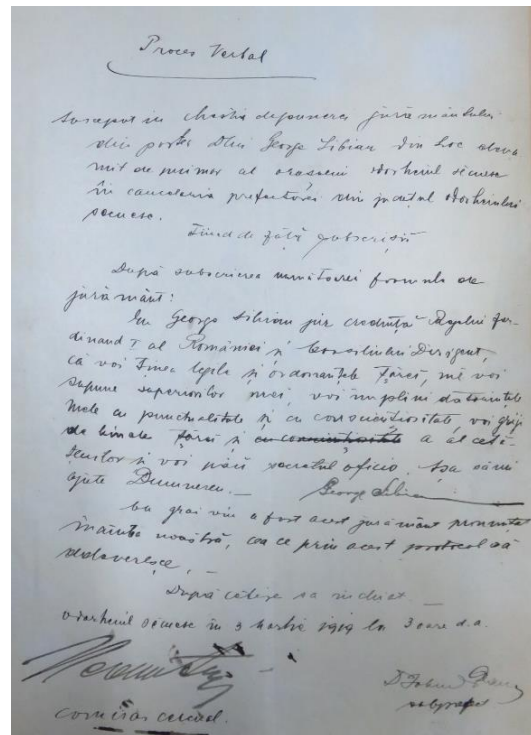 Proces Verbal
susceput in chestia depunerei jurământului
din partea Dlui George Sibian din loc denu
mit de primar al orașului Odorheiul săcuesc
în cancelaria prefecturei din județul Odorheiului
săcuesc.
Fiind de față subscrișii
După subscrierea următoarei formula de
jurământ:
Eu George Sibian jur credință Regelui Fer
dinand I al României și Consiliului Dirigent,
că voi ținea legile și ordonanțele țărei, mă voi
supune superiorilor mei, voi împlini datorintele
mele cu punctualitate și cu conscientiositate, voi griji
de binele țărei și cu conscientiositate a al cetă-
țenilor și voi păzi secretul oficios. Așa să-mi
ajute Dumnezeu. — George Sibian
Cu grai viu a fost acest jurământ pronunțat
înaintea noastră, cea ce prin acest protocol să
adeverește. —
După cetire sa încheiat
Odorheiul săcuesc în 3 Martie 1919 la 3 oare d.a.
comisar cercual.
subprefect